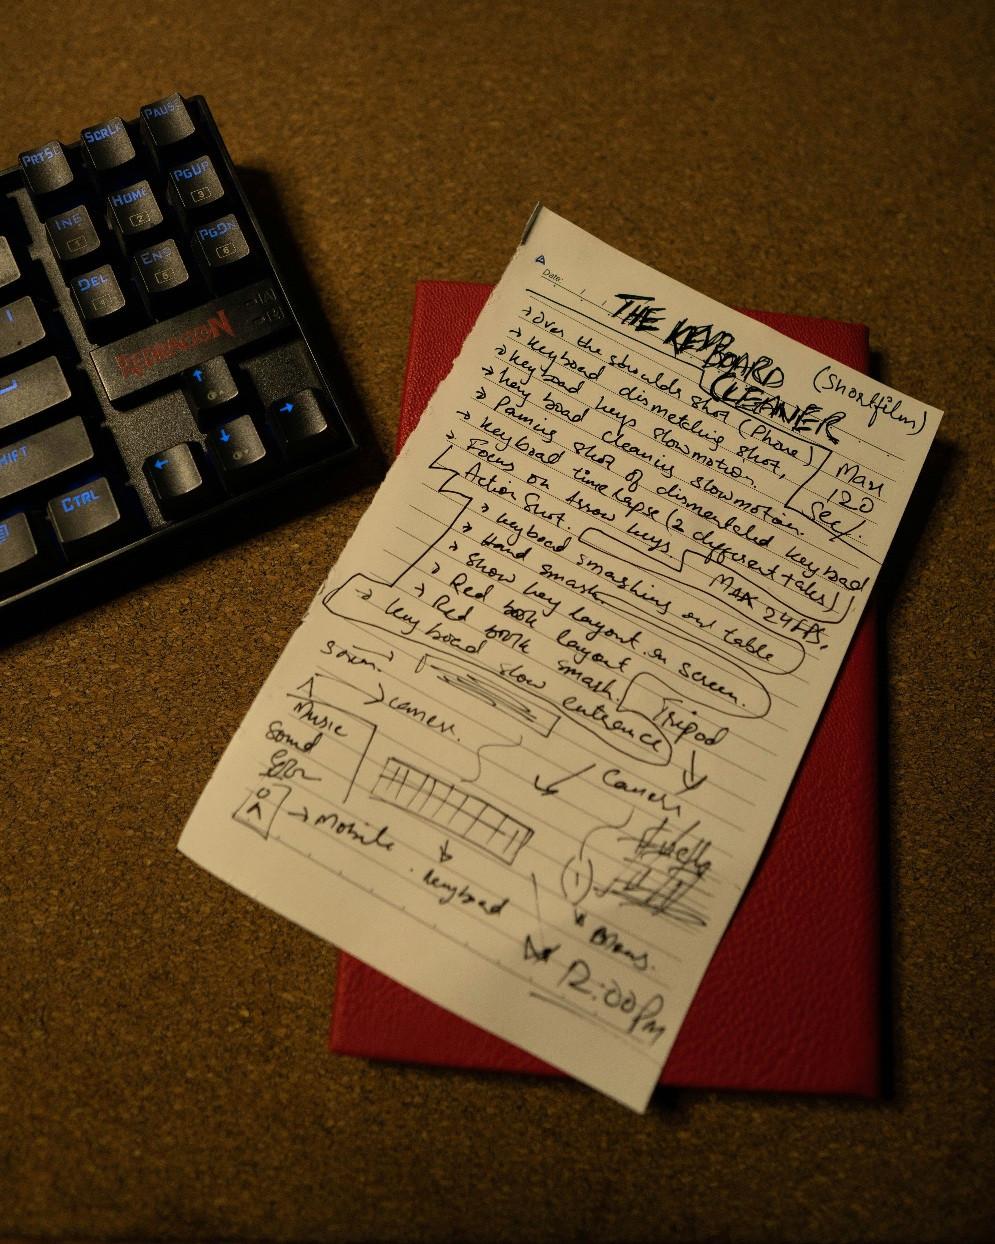 PRTSC
SCRLK
PAUSE
INS
1
HOME
2
PGUP
3
DEL
4
END
5
PGDN
6
REDRAGON
SHIFT
CTRL
Date:
THE KEYBOARD
CLEANER
(Shortfilm)
→ Over the shoulder shot (Phone)
→ Keyboad dismetling shot,
→ Key boad key slowmotion.
→ key boad cleaning slowmotion.
→ Paning shot of dismentled keyboad
→ Keyboad timelapse (2 different takes)
→ Focus on Arrow keys.
Max
120
Sec/
MAX 24FPS.
Action Shot.
→ Keyboad smashing on table
→ Hand smash
→ Show key layout on screen.
→ Red book layout
→ Red book smash.
→ Keyboad slow entrence
Tripod
→ camera.
Music
Sound
→ Mobile
keyboad
12:00 PM